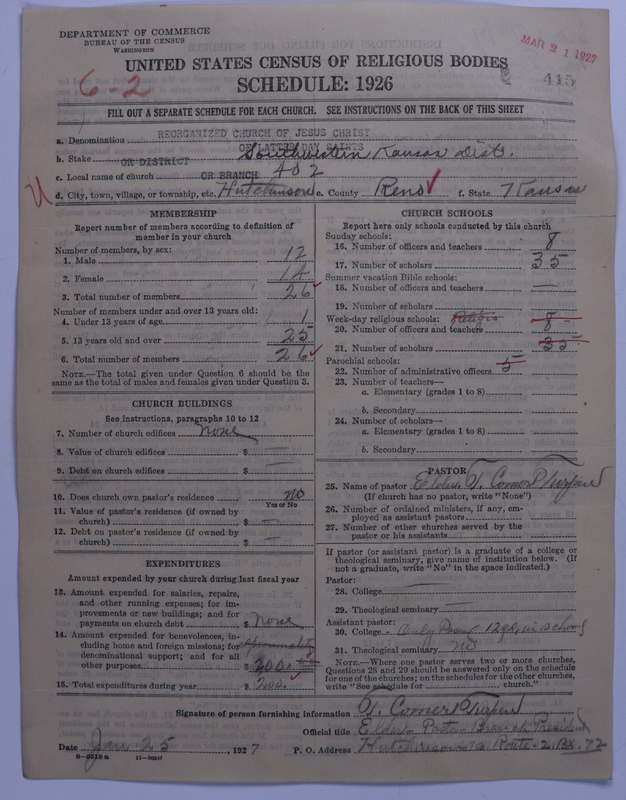 DEPARTMENT OF COMMERCE
BUREAU OF THE CENSUS
WASHINGTON
MAR 21 1927
UNITED STATES CENSUS OF RELIGIOUS BODIES
SCHEDULE: 1926
6-2
415
FILL OUT A SEPARATE SCHEDULE FOR EACH CHURCH. SEE INSTRUCTIONS ON THE BACK OF THIS SHEET
a. Denomination REORGANIZED CHURCH OF JESUS CHRIST
OF LATTER DAY SAINTS
b. Stake OR DISTRICT Southwestern Kansas Dist.
c. Local name of church OR BRANCH 402
d. City, town, village, or township, etc. Hutchinson e. County Reno f. State Kansas
MEMBERSHIP
Report number of members according to definition of
member in your church
Number of members, by sex:
1. Male 12
2. Female 14
3. Total number of members 26
Number of members under and over 13 years old:
4. Under 13 years of age 1
5. 13 years old and over 25
6. Total number of members 26
NOTE.—The total given under Question 6 should be the
same as the total of males and females given under Question 3.
CHURCH BUILDINGS
See instructions, paragraphs 10 to 12
7. Number of church edifices none
8. Value of church edifices $ —
9. Debt on church edifices $ —
10. Does church own pastor's residence no
Yes or No
11. Value of pastor's residence (if owned by
church) $ —
12. Debt on pastor's residence (if owned by
church) $ —
EXPENDITURES
Amount expended by your church during last fiscal year
13. Amount expended for salaries, repairs,
and other running expenses; for im-
provements or new buildings; and for
payments on church debt $ none
14. Amount expended for benevolences, in-
cluding home and foreign missions; for
denominational support; and for all
other purposes $ 200.
15. Total expenditures during year $ 200.
CHURCH SCHOOLS
Report here only schools conducted by this church
Sunday schools:
16. Number of officers and teachers 8
17. Number of scholars 35
Summer vacation Bible schools:
18. Number of officers and teachers —
19. Number of scholars
Week-day religious schools: Religio
20. Number of officers and teachers 8
21. Number of scholars 35
Parochial schools:
22. Number of administrative officers 5
23. Number of teachers—
a. Elementary (grades 1 to 8)
b. Secondary
24. Number of scholars—
a. Elementary (grades 1 to 8)
b. Secondary
PASTOR
25. Name of pastor Elder. T. Conner
(If church has no pastor, write "None")
26. Number of ordained ministers, if any, em-
ployed as assistant pastors
27. Number of other churches served by the
pastor or his assistants
If pastor (or assistant pastor) is a graduate of a college or
theological seminary, give name of institution below. (If
not a graduate, write "No" in the space indicated.)
Pastor:
28. College —
29. Theological seminary —
Assistant pastor:
30. College - Only school
31. Theological seminary no
NOTE.—Where one pastor serves two or more churches,
Questions 28 and 29 should be answered only on the schedule
for one of the churches; on the schedules for the other churches,
write "See schedule for church."
Signature of person furnishing information T. Conner
Official title Elder - Pastor - Branch President
Date Jan 25, 1927 P. O. Address Hutchinson Ks. Route-2 Bx. 77
8-2519 a